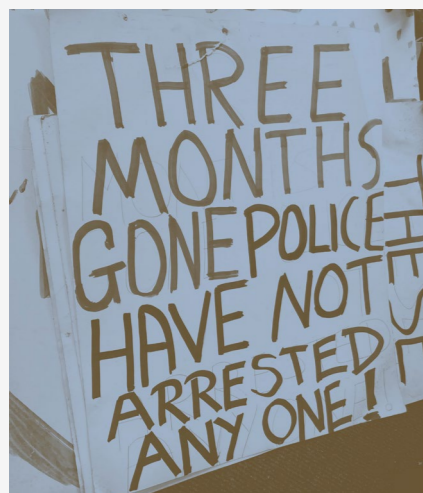 THREE
MONTHS
GONE POLICE
HAVE NOT
ARRESTED
ANY ONE!
THESE